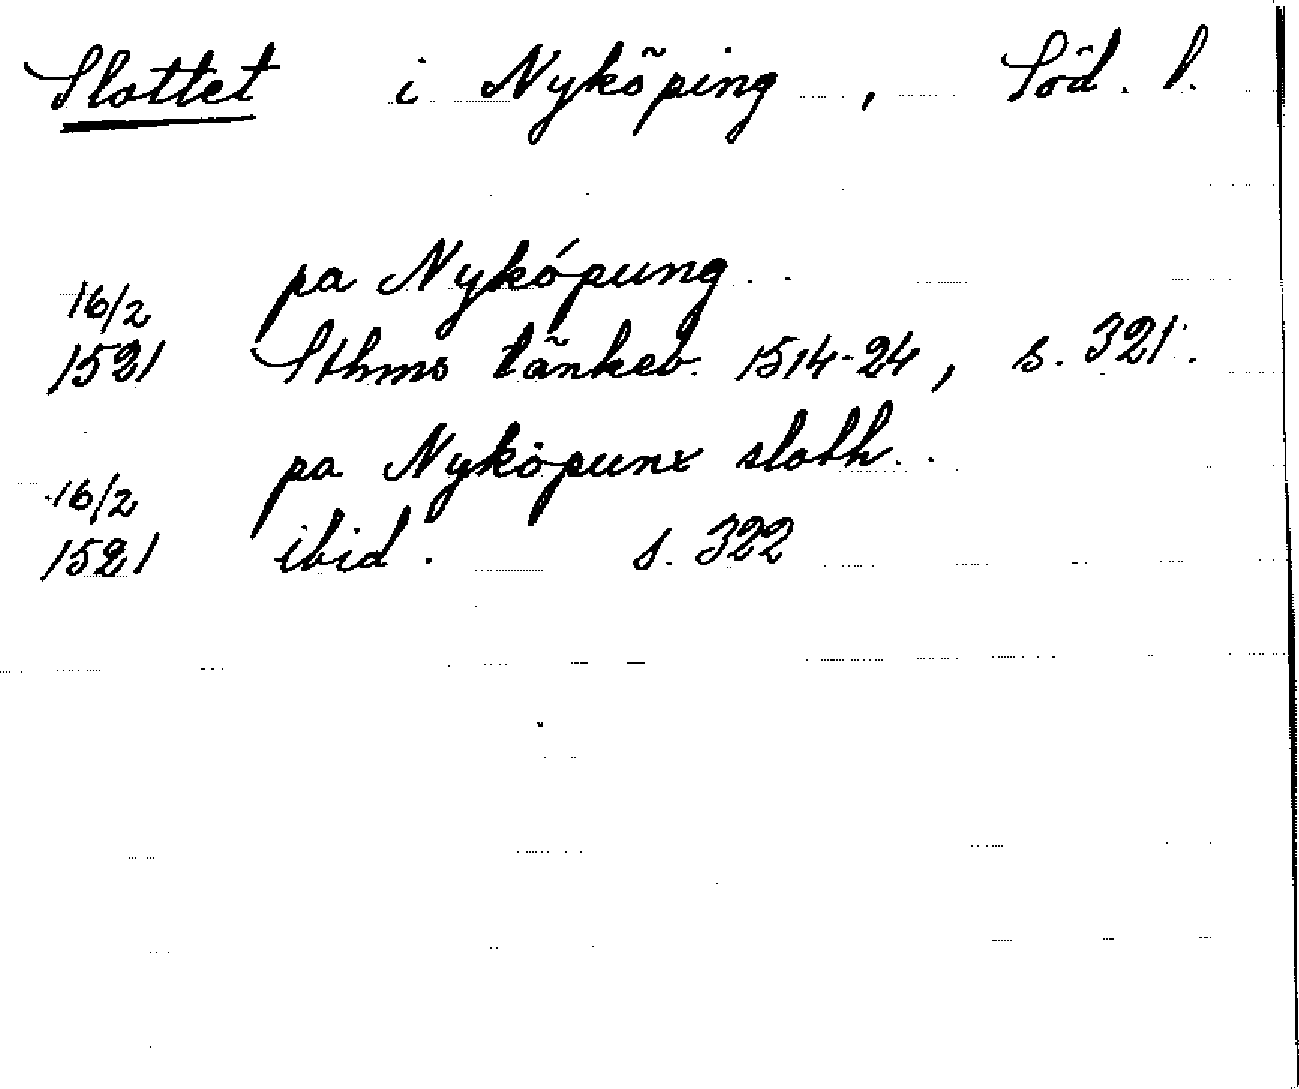 Slottet i Nyköping, Söd. l.
pa Nykópung
16/2
1521 Sthms tänkeb. 1514-24, s. 321.
pa Nyköpunx sloth.
16/2
1521 ibid. s. 322